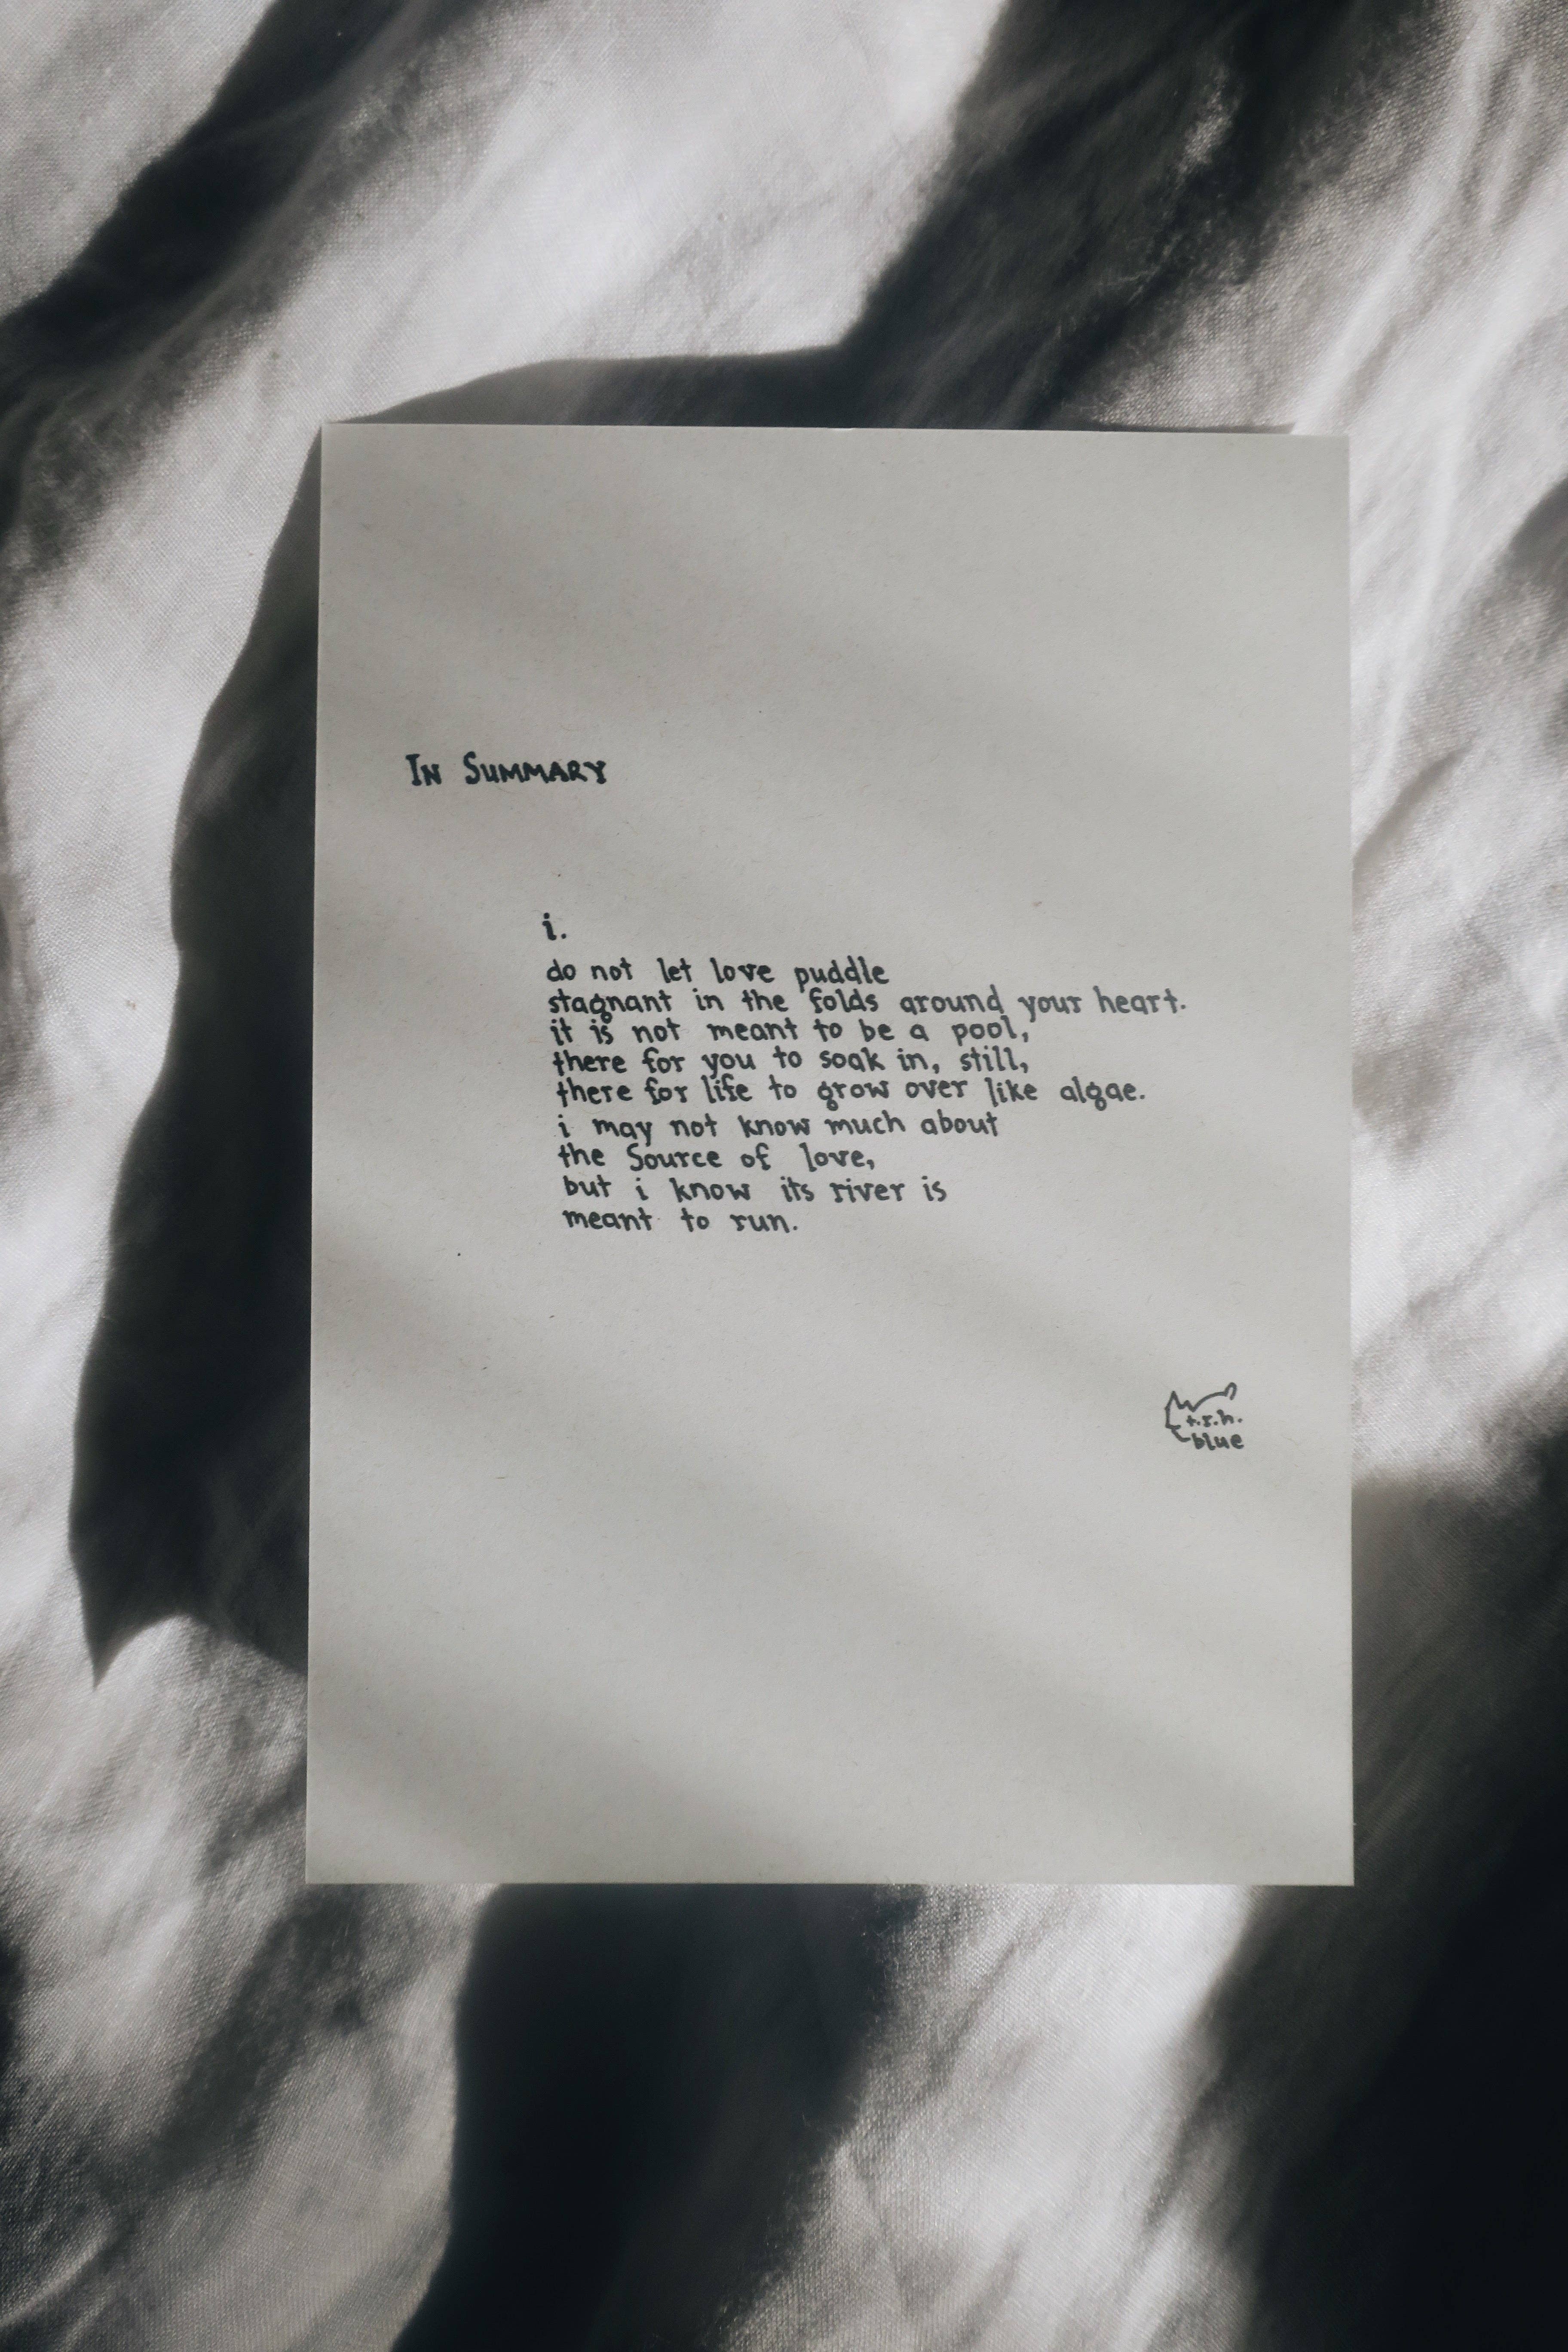 IN SUMMARY
i.
do not let love puddle
stagnant in the folds around your heart.
it is not meant to be a pool,
there for you to soak in, still,
there for life to grow over like algae.
i may not know much about
the Source of love,
but i know its river is
meant to run.
t.s.h.
blue